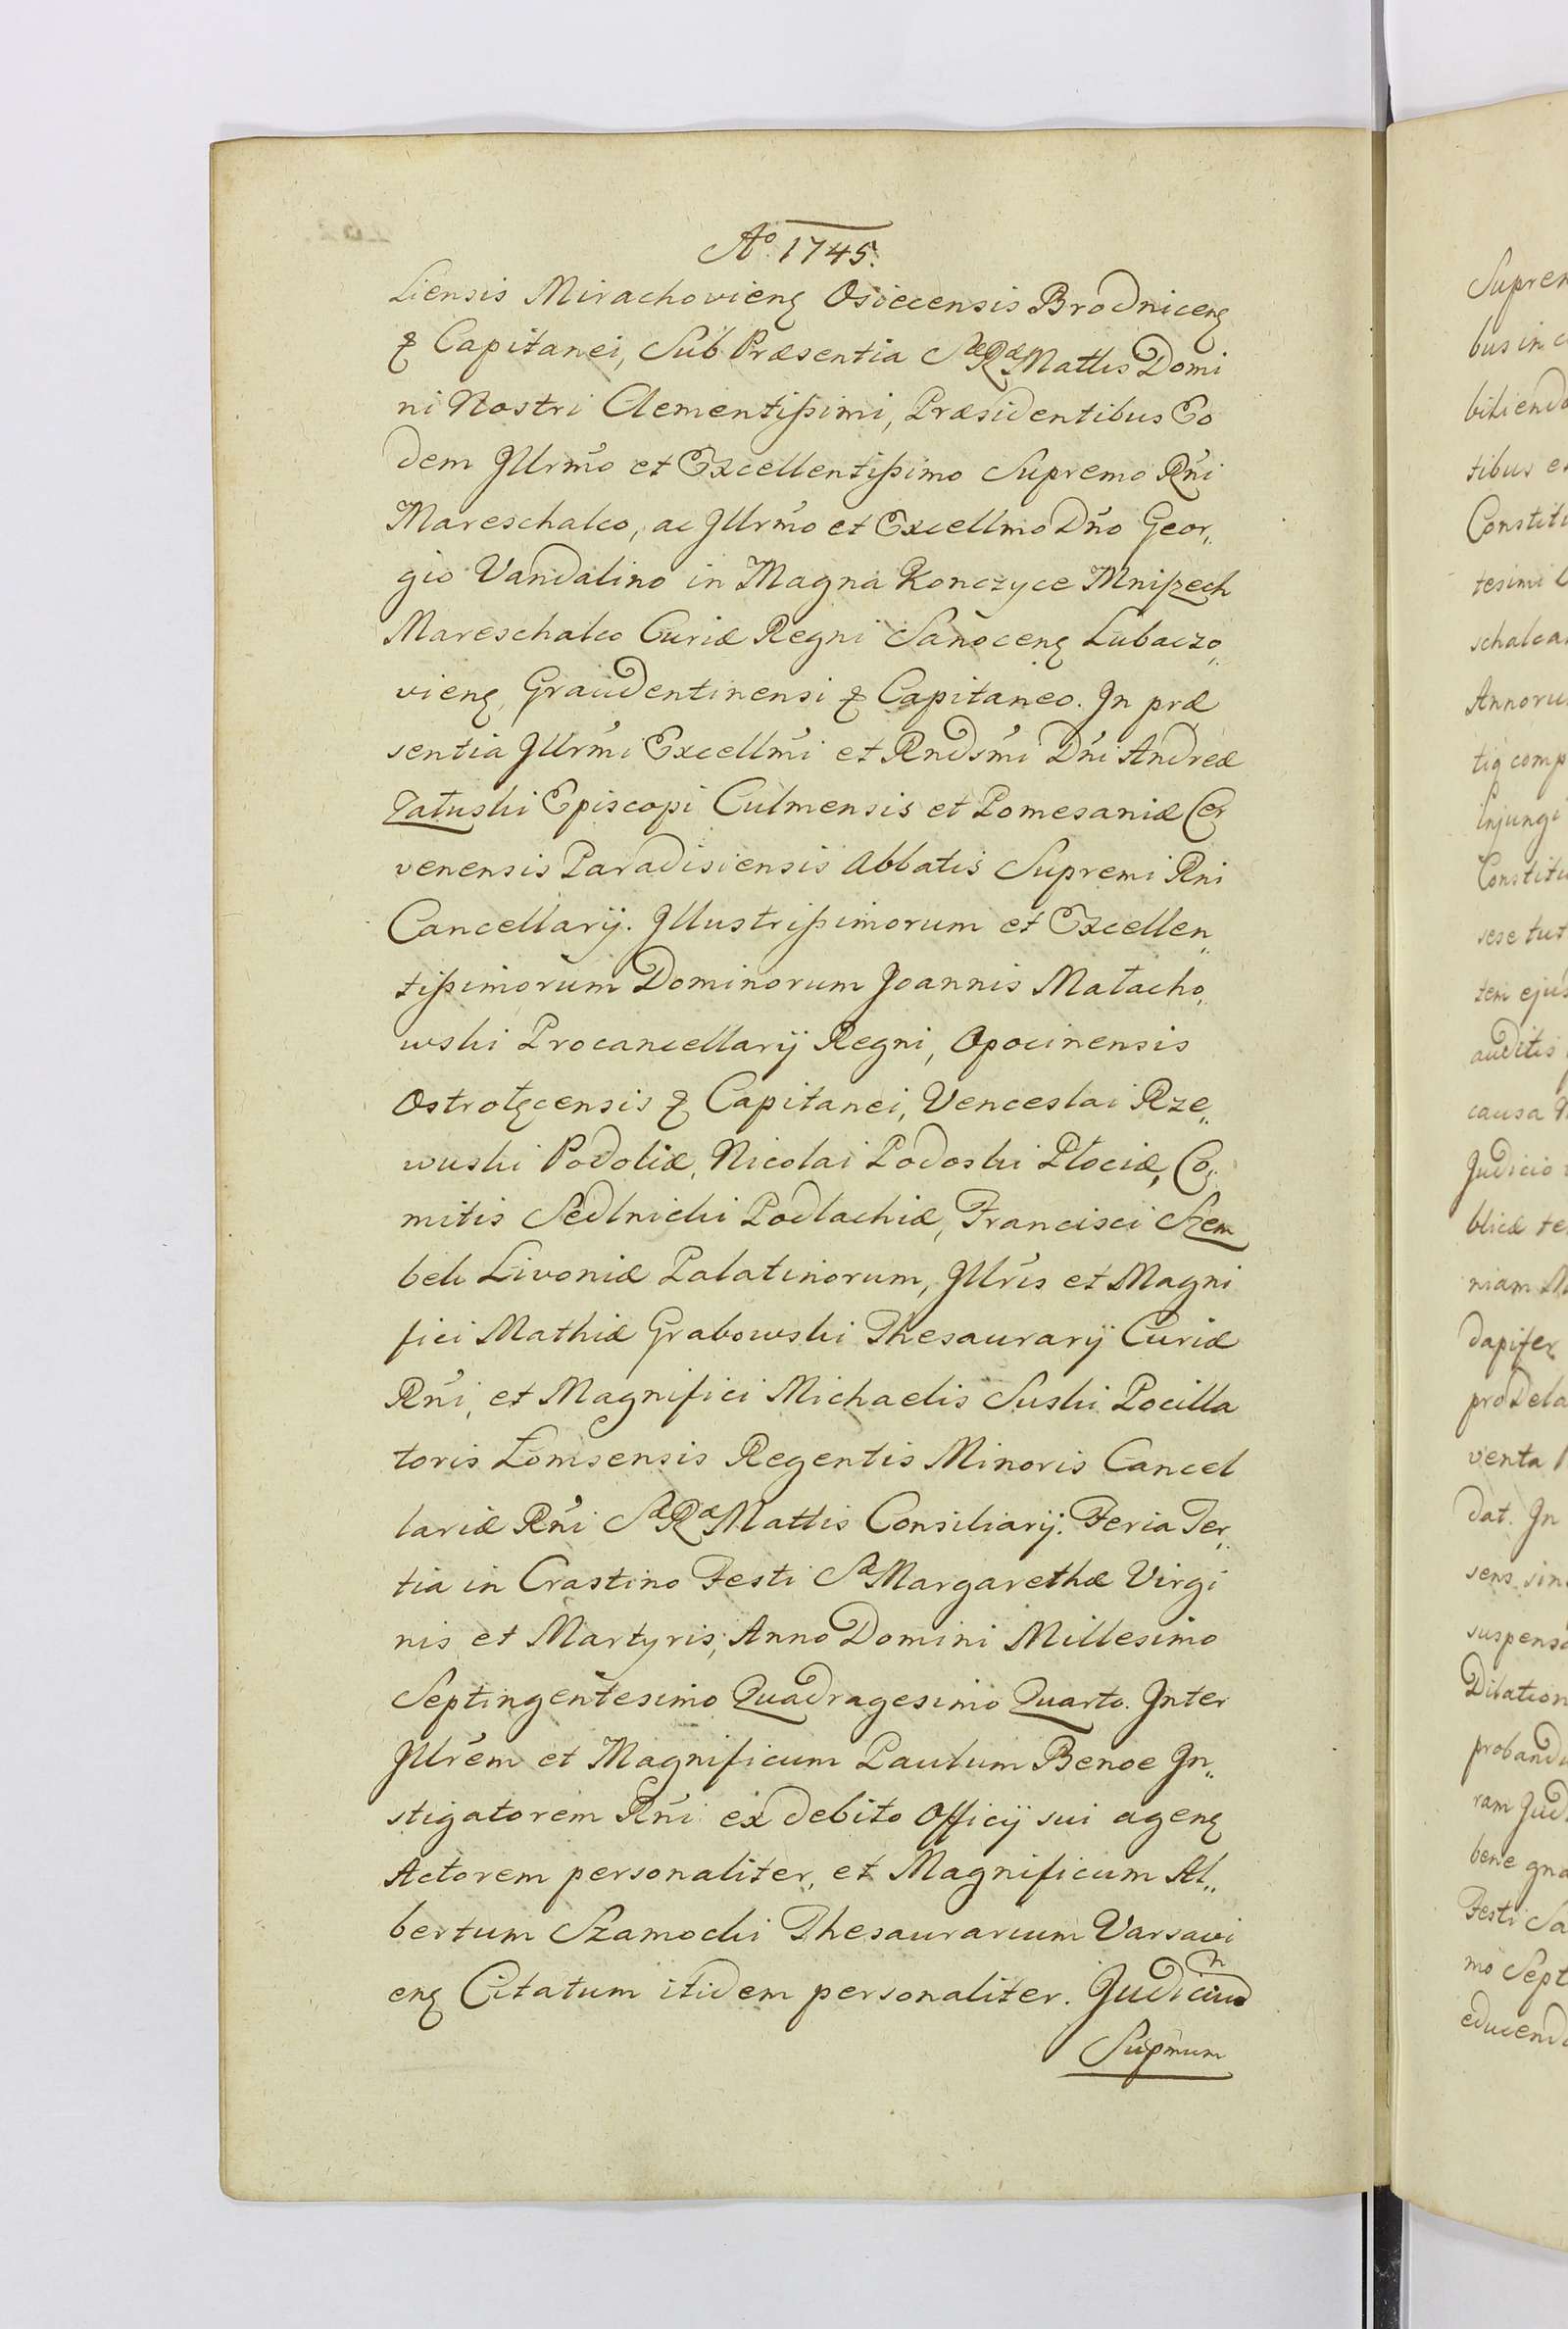 Ao. 1745.
Liensis Mirachovienȩ Osiecensis Brodnicenȩ
& Capitanei, Sub Præsentia Sæ Ræ Mattis Domi
ni Nostri Clementissimi, Præsidentibus Eo
dem Jllrmo et Excellentissimo Supremo Rni
Mareschalco, ac Jllrmo et Excellmo Dno Geor„
gio Vandalino in Magna Konczyce Mniszech
Mareschalco Curiæ Regni Sanocenȩ Lubaczo„
vienȩ, Graudentinensi & Capitaneo. Jn præ
sentia Jllrmi Excellmi et Rndsmi Dni Andreæ
Załuski Episcopi Culmensis et Pomesaniæ Cer
venensis Paradisiensis Abbatis Supremi Rni
Cancellarij. Jllustrissimorum et Excellen„
tissimorum Dominorum Joannis Małacho„
wski Procancellarij Regni, Opocinensis
Ostrołȩcensis & Capitanei, Venceslai Rze„
wuski Podoliæ, Nicolai Podoski Płociæ, Co„
mitis Sedlnicki Podlachiæ, Francisci Szem
bek Livoniæ Palatinorum, Jllris et Magni
fici Mathiæ Grabowski Thesaurarij Curiæ
Rni, et Magnifici Michaelis Suski Pocilla
toris Łomsensis Regentis Minoris Cancel
lariæ Rni Sæ Ræ Mattis Consiliarij. Feria Ter„
tia in Crastino Festi Sæ Margarethæ Virgi
nis et Martyris, Anno Domini Millesimo
Septingentesimo Quadragesimo Quarto. Jnter
Jllrem et Magnificum Paulum Benoe Jn„
stigatorem Rni ex debito Officij sui agenȩ
Actorem personaliter, et Magnificum Al„
bertum Szamocki Thesaurarium Varsavi
enȩ Citatum itidem personaliter. Judicium
Supmum
Suprem
bus in
bitiendo
tibus
Constit
tesimi
schalca
Annoru
tiq comp
injungi
Constit
sese tut
tem ejus
auditis
causa
Judicio
blicæ te
niam
dapifer
pro Dela
venta
dat. Jn
sens sin
suspenso
Dilation
proband
ram Jud
bene gna
Festi Sa
mo Sept
educend